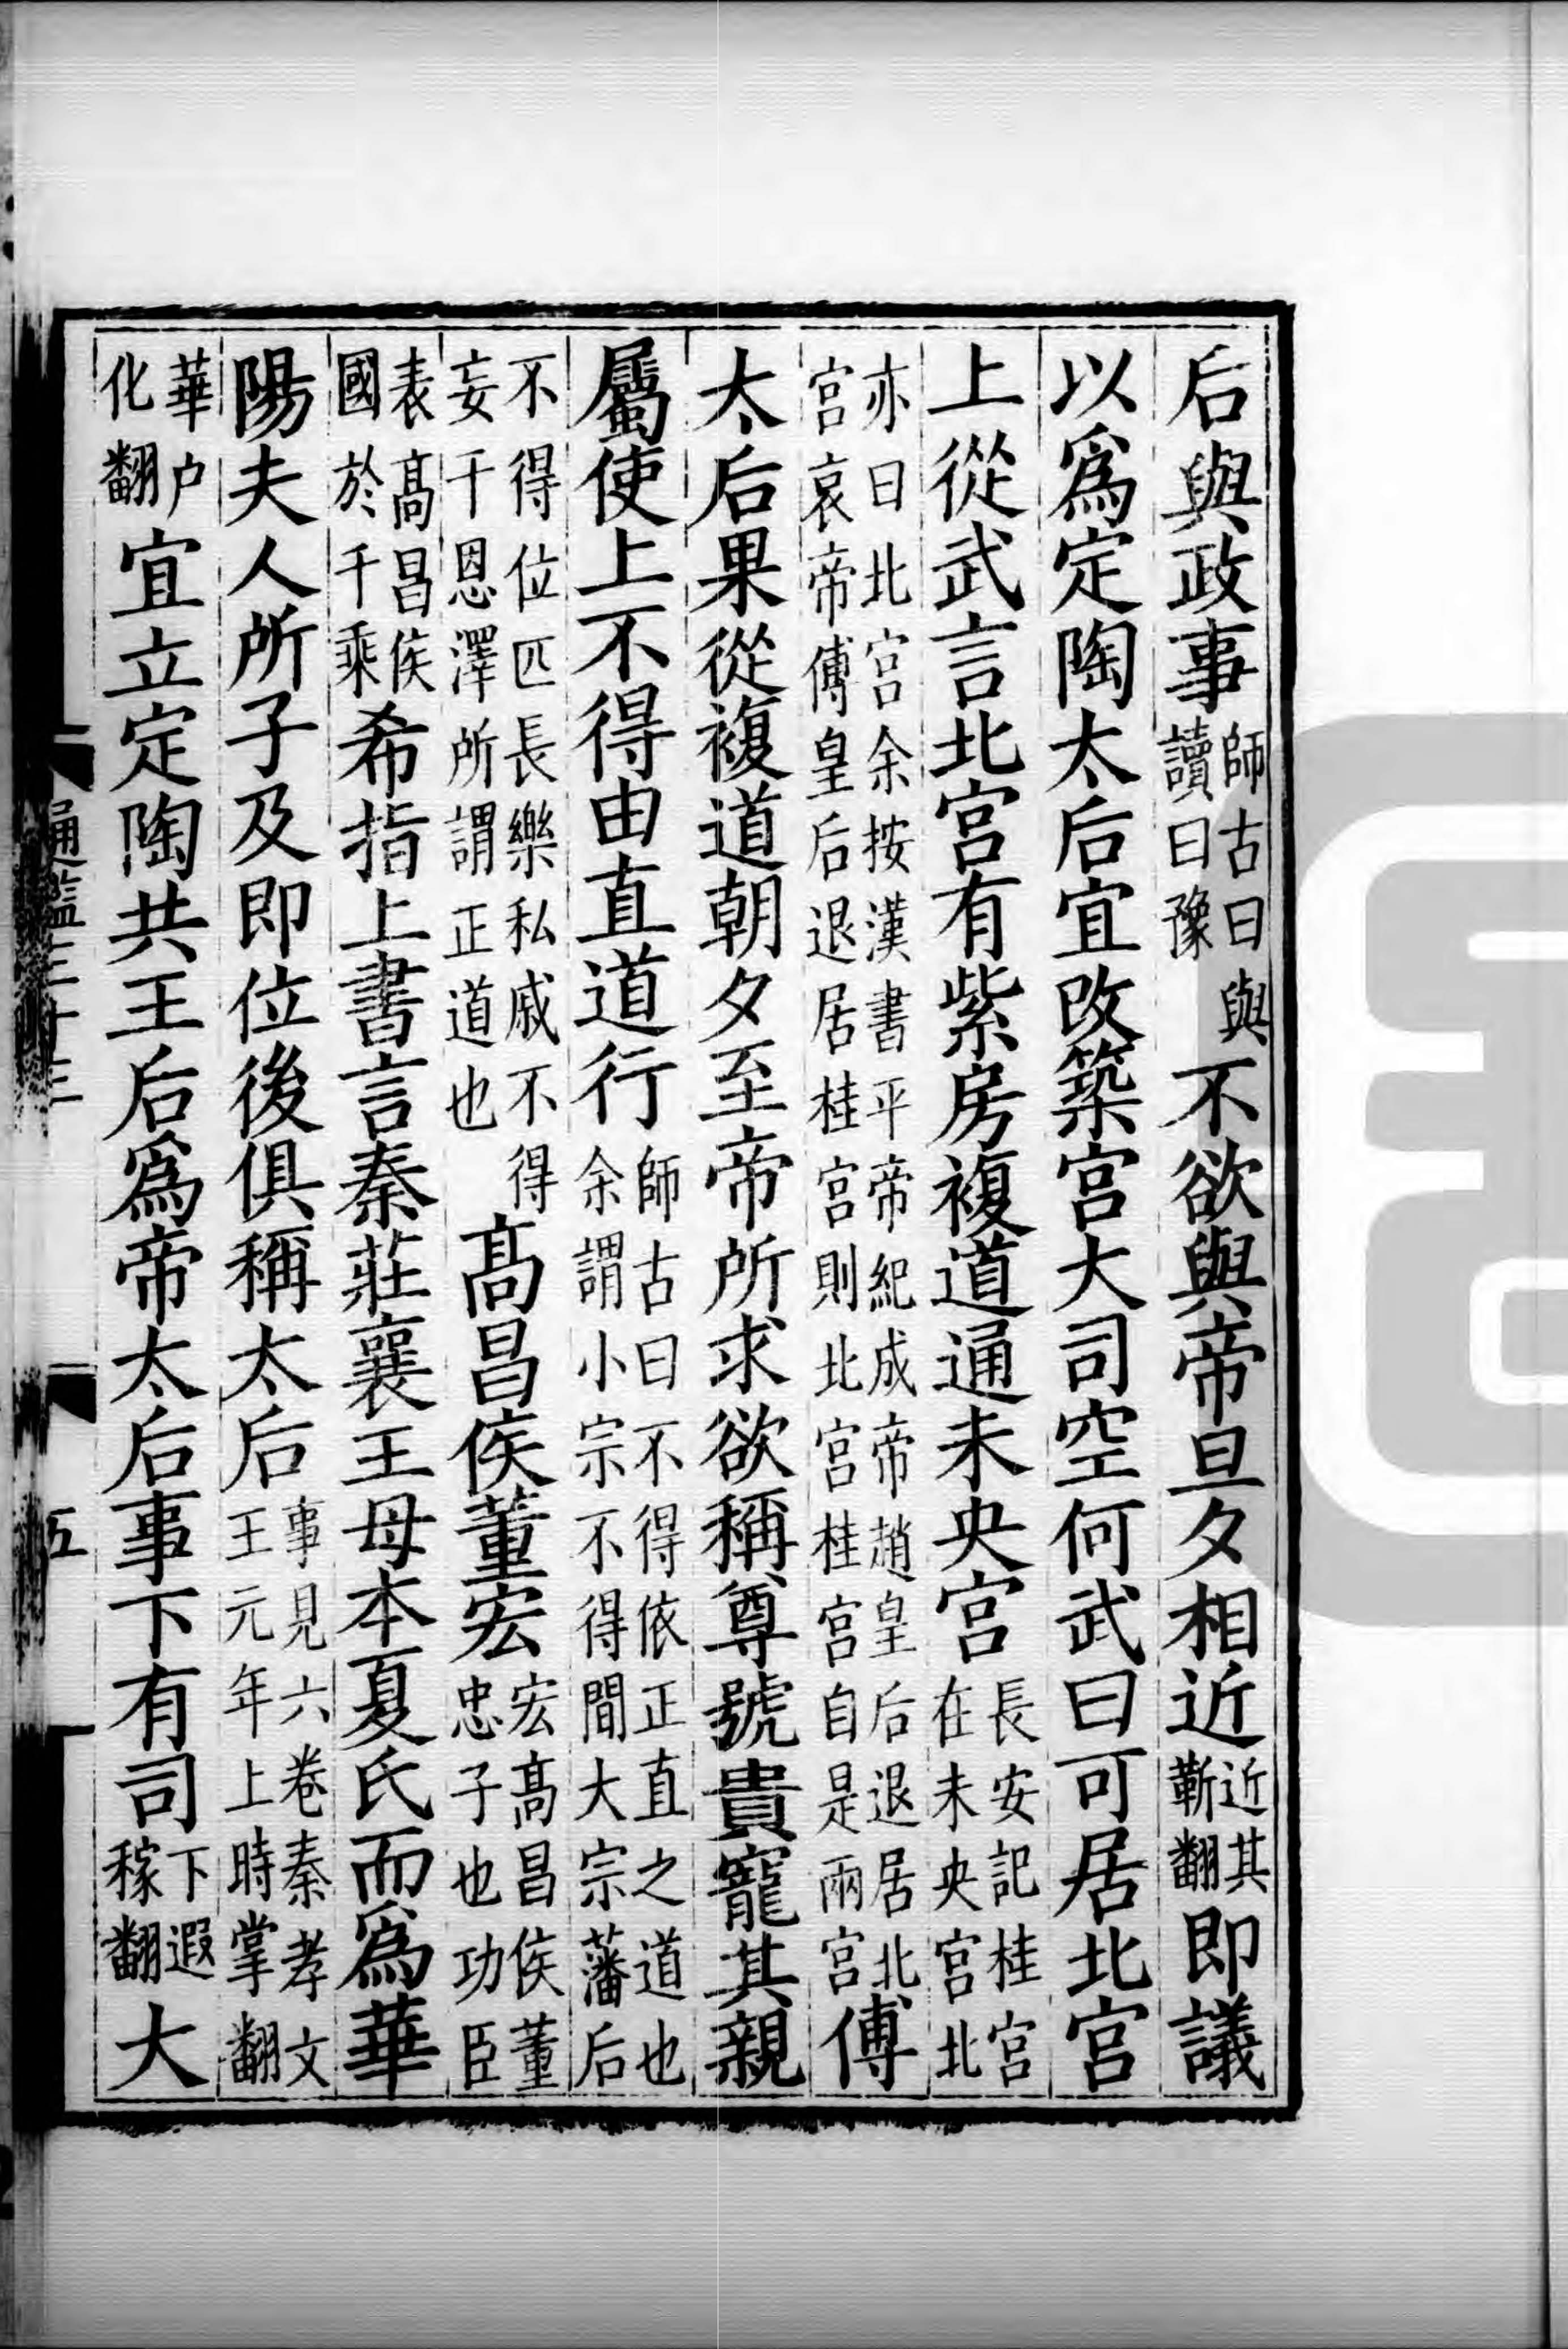 后與政事師古曰與讀曰豫不欲與帝旦夕相近近其靳翻即議
以爲定陶太后宜改築宮大司空何武曰可居北宮
上從武言北宮有紫房複道通未央宮長安記桂宮在未央宮北
亦曰北宮余按漢書平帝紀成帝趙皇后退居北宮哀帝傅皇后退居桂宮則北宮桂宮自是兩宮傅
太后果從複道朝夕至帝所求欲稱尊號貴寵其親
屬使上不得由直道行師古曰不得依正直之道也余謂小宗不得間大宗藩后
不得位匹長樂私戚不得妄干恩澤所謂正道也高昌侯董宏宏高昌侯董忠子也功臣
表高昌侯國於千乘希指上書言秦莊襄王母本夏氏而爲華
陽夫人所子及即位後俱稱太后事見六卷秦孝文王元年上時掌翻
華户化翻宜立定陶共王后爲帝太后事下有司下遐稼翻大
通鑑三十三
五